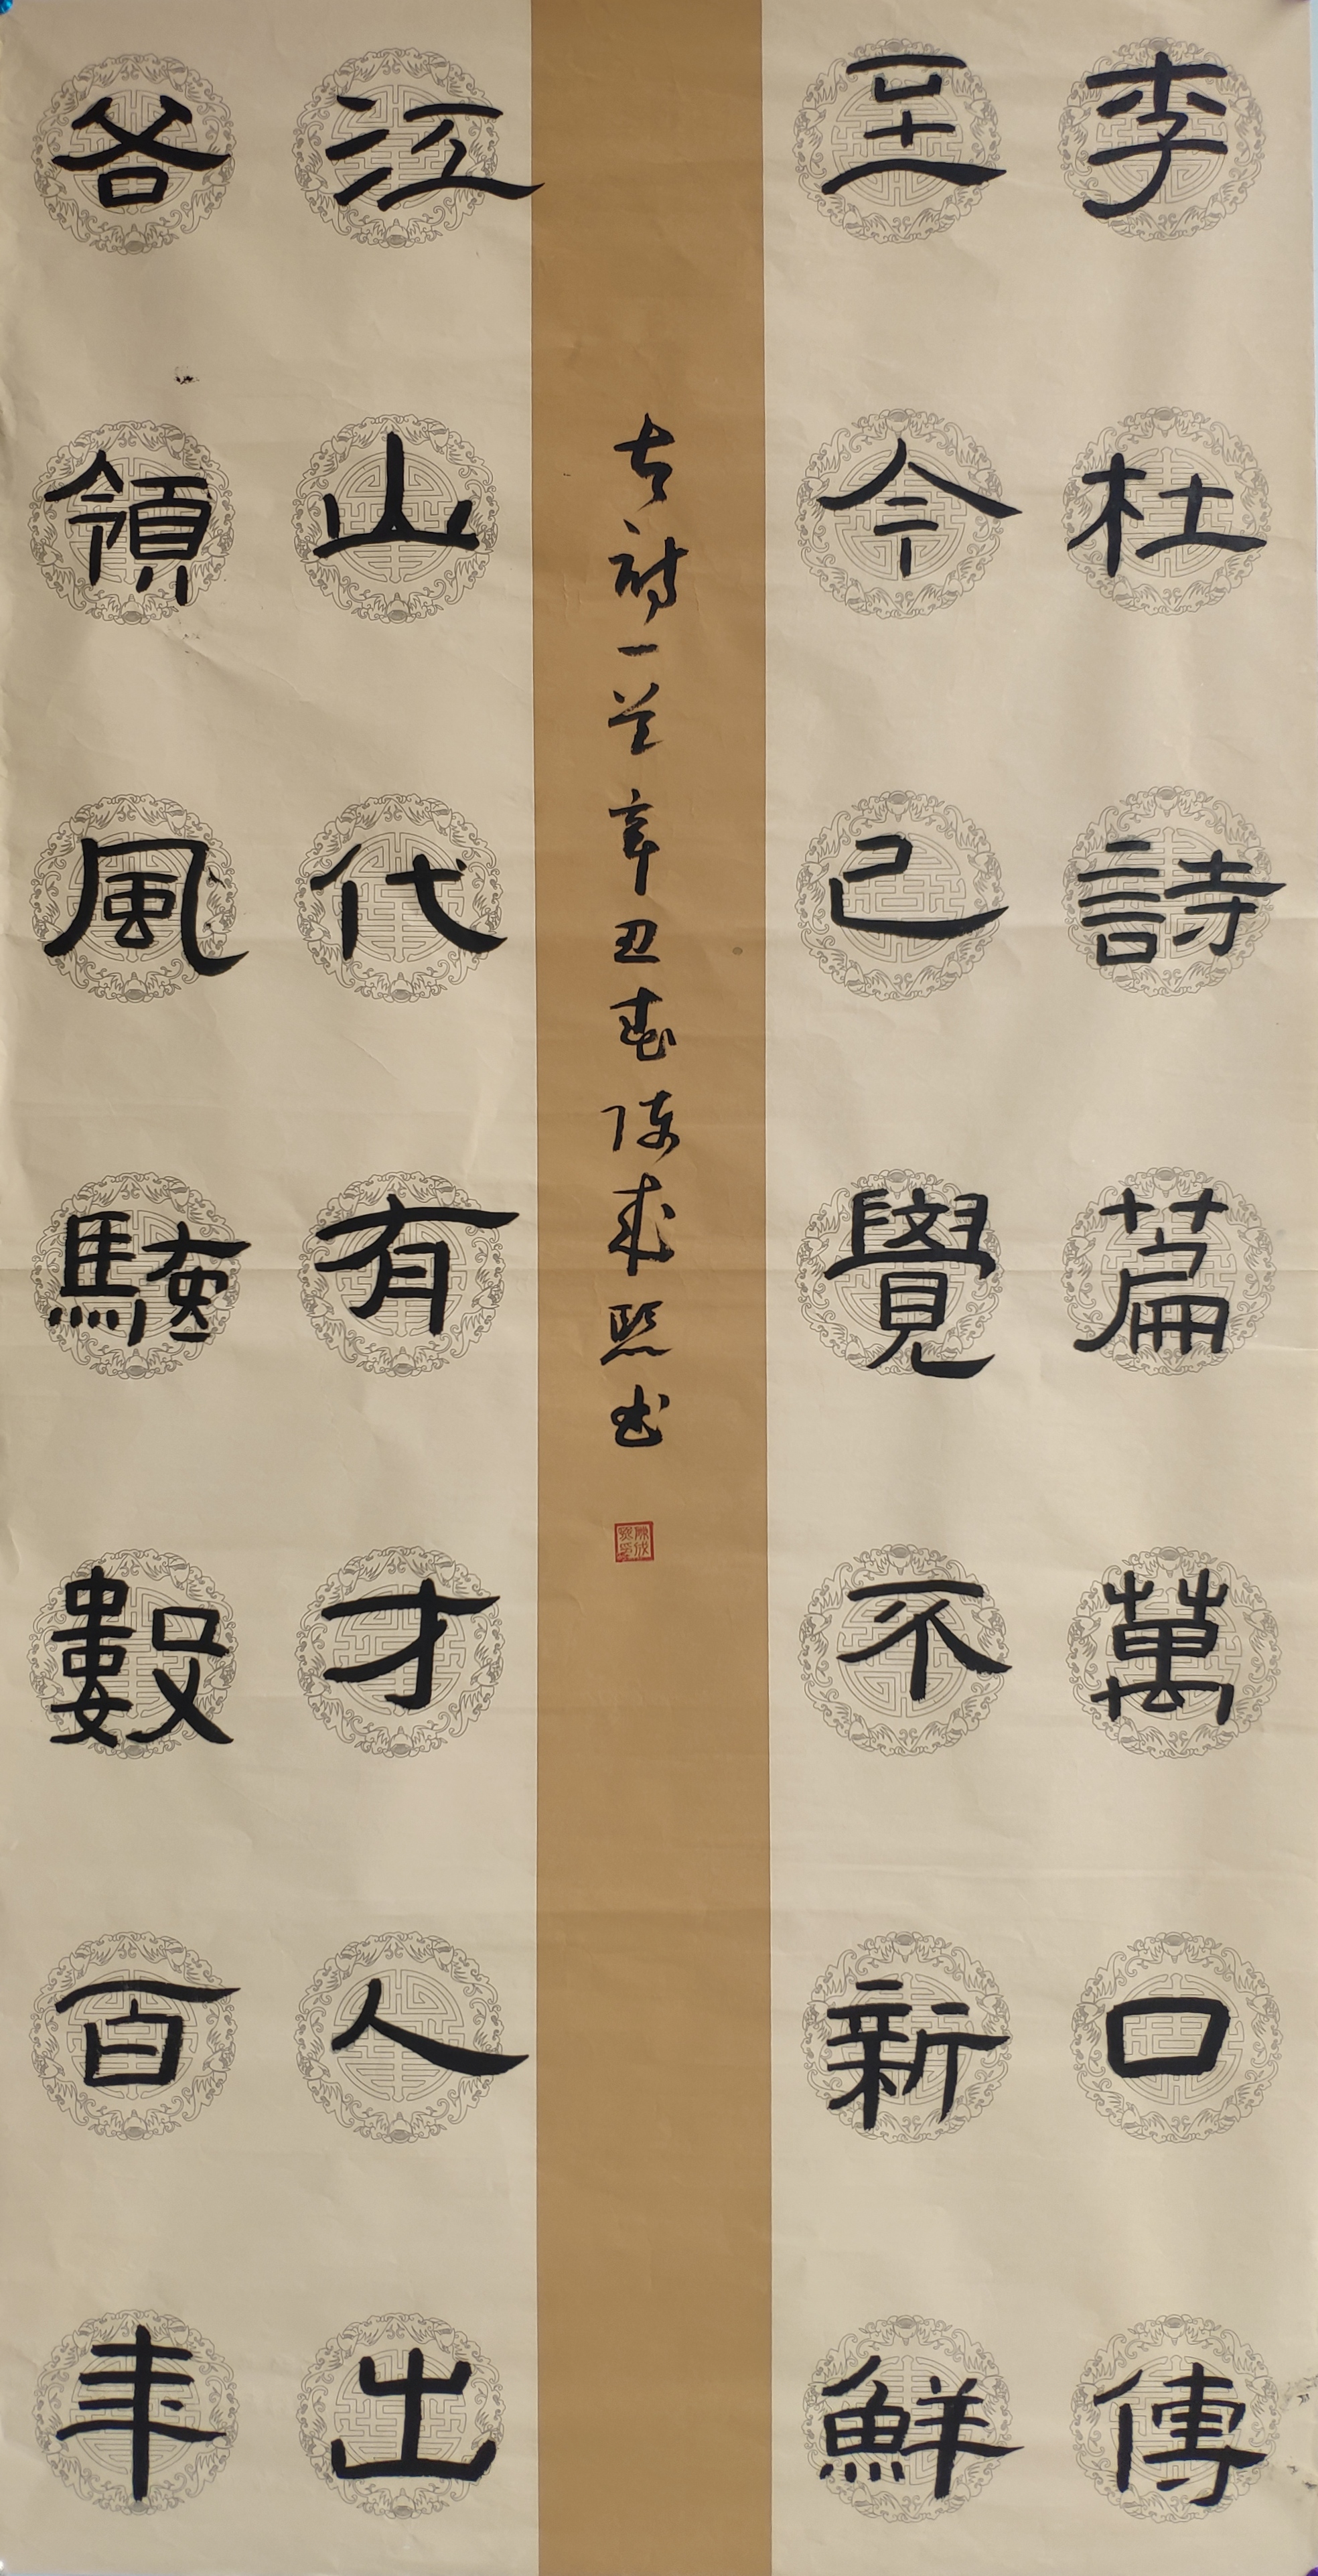 李杜詩篇萬口傳
至今已覺不新鮮
江山代有才人出
各領風騷數百年
古诗一首 辛丑春 陈 熙书